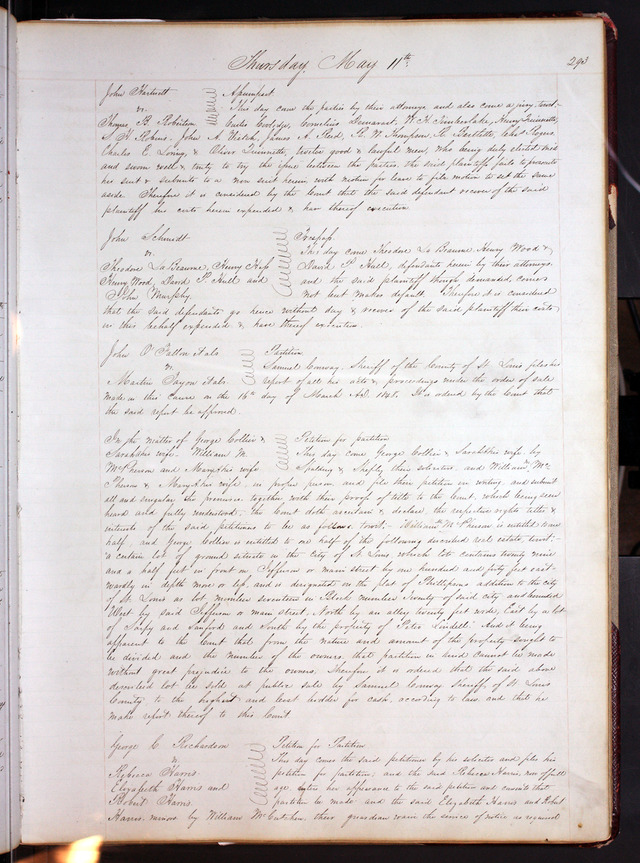 Thursday, May 11th 293
John Hartnett Assumpsit
vs. This day came the parties by their attorneys and also came a jury, to wit,
Thomas B. Robertson Cornelius Demarest, W. H. Timberlake, Henry
John A. Walsh, James A. Reid, R. W. Thompson, Chas Rogers,
Charles E. Loring, & Oliver twelve good & lawful men, who being duly elected tried
and sworn well & truly to try the issue between the parties, the said plaintiff fails to prosecute
his suit & submits to a non suit herein with motion for leave to file motion to set the same
aside Therefore it is considered by the Court that the said defendant recover of the said
plaintiff his costs herein expended & have thereof execution
John Schmidt Trespass.
vs. This day came Theodore La Beaume, Henry Wood &
Theodore La Beaume, Henry Hess David P. Hull, defendants herein by their attorneys
Henry Wood, David P. Hull and and the said plaintiff though demanded, comes
John Murphy. not but makes default. Therefore it is considered
that the said defendants go hence without day & recover of the said plaintiff their costs
in this behalf expended & have thereof execution.
John O'Fallon et als Partition
vs. Samuel Conway, Sheriff of the County of St. Louis files his
Martin Sayou et als. report of all his acts & proceedings under the order of sale
made in this cause on the 16th day of March A.D. 1848. It is ordered by the Court that
the said report be approved.
In the matter of George Collier & Petition for partition
Sarah his wife. William M. This day come George Collier & Sarah his wife by
McPherson and Mary his wife Spalding & Shepley their solicitors, and William Mc
Pherson & Mary his wife, in proper person and file their petition in writing, and submit
all and singular the premises, together with their proof of title to the Court, which being seen
heard and fully understood, the Court doth ascertain & declare, the respective rights titles &
interests of the said petitioners to be as follows, towit,- William M. McPherson is entitled to one
half, and George Collier is entitled to one half of the following described real estate, towit,-
"a certain lot of ground situate in the City of St. Louis which lot contains twenty nine
and a half feet in front on Jefferson or main street by one hundred and fifty feet east-
wardly in depth more or less, and is designated on the plat of Phillipsons addition to the city
of St. Louis as lot number seventeen in Block number Twenty of said city and bounded
West by said Jefferson or main street, North by an alley twenty feet wide, East by a lot
of Sarpy and Sanford and South by the property of Peter Lindell. And it being
apparent to the Court that from the nature and amount of the property sought to
be divided and the number of the owners that partition in kind cannot be made
without great prejudice to the owners, therefore it is ordered that the said above
described lot be sold at public sale by Samuel Conway Sheriff of St Louis
County to the highest and best bidder for cash, according to law and that he
make report thereof to this Court
George C. Richardson Petition for Partition
vs. This day comes the said petitioner by his solicitor and files his
Rebecca Harris petition for partition, and the said Rebecca Harris, now of full
Elizabeth Harris and age enters her appearance to the said petition and consents that
Robert Harris partition be made and the said Elizabeth Harris and Robert
Harris, minors by William McCutchen, their guardian waive the service of notice as required